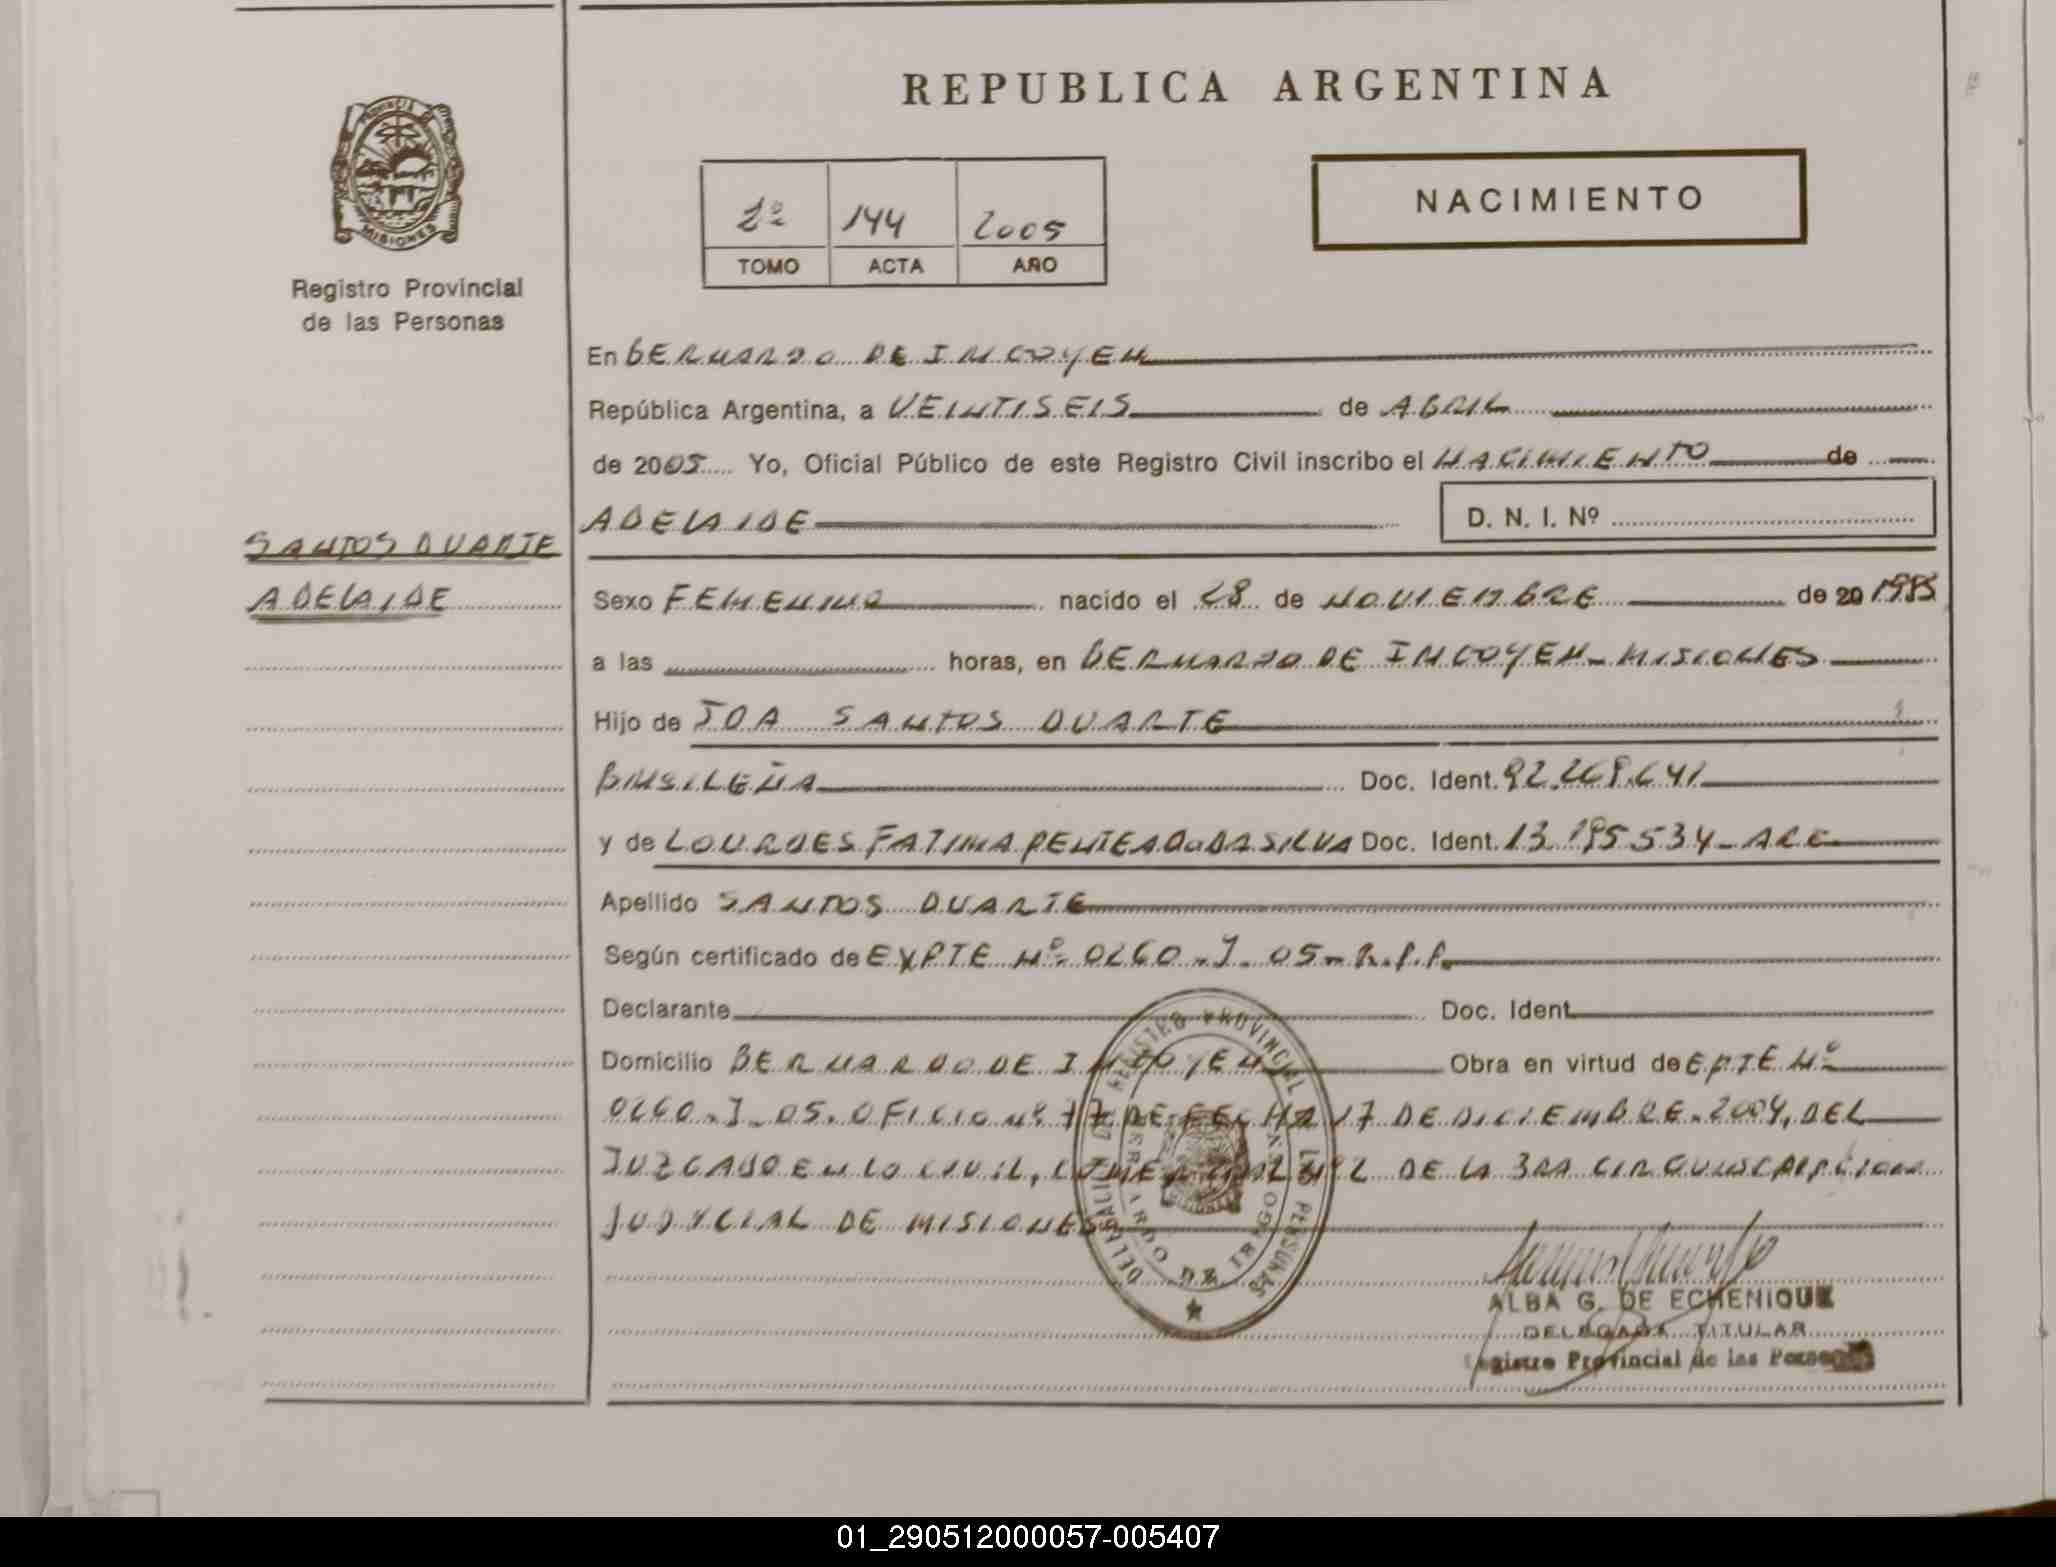 REPUBLICA ARGENTINA
PROVINCIA
MISIONES
Registro Provincial
de las Personas
2º 144 2005
TOMO ACTA AÑO
NACIMIENTO
En BERNARDO DE IRIGOYEN
República Argentina, a VEINTISEIS de ABRIL
de 2005 Yo, Oficial Público de este Registro Civil inscribo el NACIMIENTO de
SANTOS DUARTE
ADELAIDE
ADELAIDE
D. N. I. Nº
Sexo FEMENINO nacido el 28 de NOVIEMBRE de 20 1985
a las horas, en BERNARDO DE IRIGOYEN - MISIONES
Hijo de JOA SANTOS DUARTE
BRASILEÑA Doc. Ident. 92.269.641
y de LOURDES FATIMA PENTEADO DA SILVA Doc. Ident. 13.195.534 - ARG
Apellido SANTOS DUARTE
Según certificado de EXPTE Nº 0260-J-05-R.P.P.
Declarante Doc. Ident
Domicilio BERNARDO DE IRIGOYEN Obra en virtud de EPTE Nº
0260-J-05. OFICIO Nº 77 DE FECHA 17 DE DICIEMBRE. 2004, DEL
JUZGADO EN LO CIVIL, COMERCIAL Nº2 DE LA 3RA CIRCUNSCRIPCION
JUDICIAL DE MISIONES
DELEGACION REGISTRO PROVINCIAL DE LAS PERSONAS
BERNARDO DE IRIGOYEN
ALBA G. DE ECHENIQUE
DELEGADA TITULAR
Registro Provincial de las Personas
01_290512000057-005407